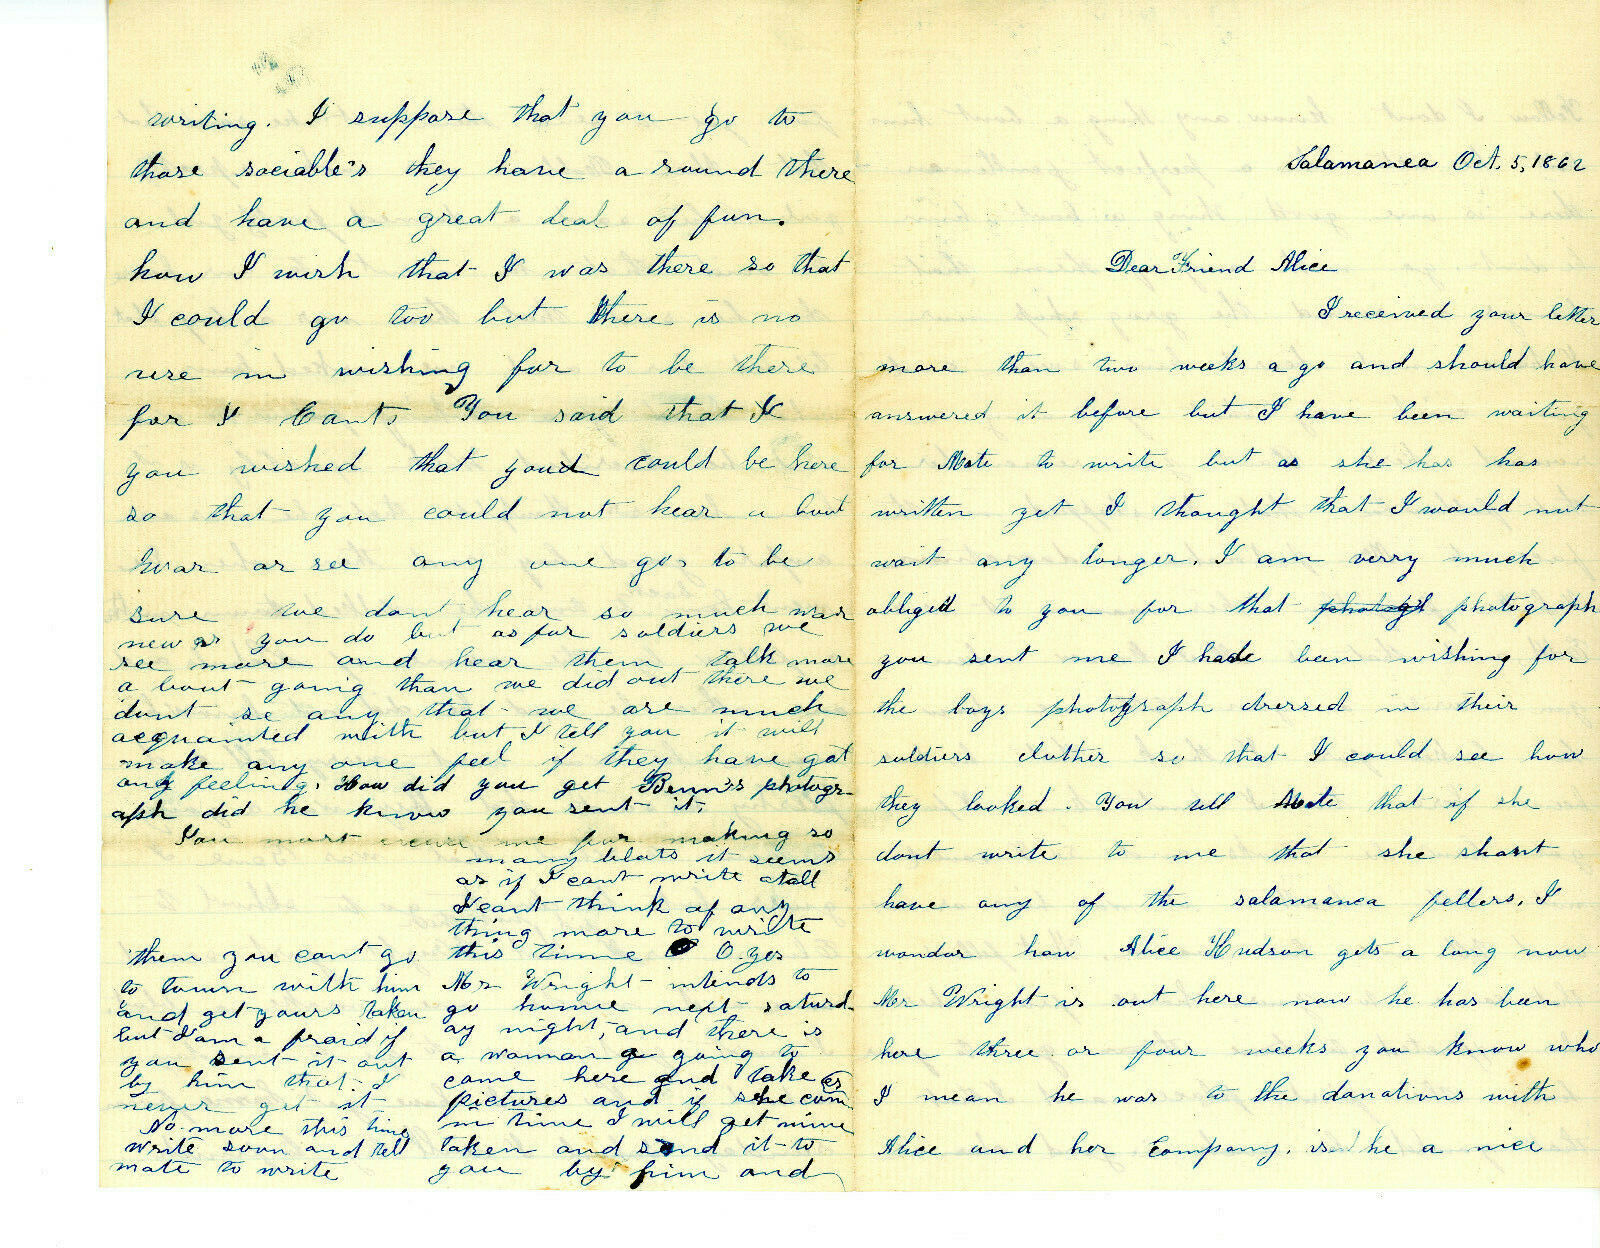 Salamanca Oct. 5, 1862
Dear Friend Alice
I received your letter
more than two weeks a go and should have
answered it before but I have been waiting
for Mate to write but as she has has
written yet I thought that I would not
wait any longer. I am verry much
obliged to you for that photogh photograph
you sent me I have been wishing for
the boys photograph dressed in their
soldiers clothes so that I could see how
they looked. You tell Mate that if she
dont write to me that she shant
have any of the salamanca fellers. I
wondar how Alice Hudson gets a long now
Mr Wright is out here now he has been
here three or four weeks you know who
I mean he was to the donations with
Alice and her Company. is he a nice
writing. I suppose that you go to
those sociable's they have a round there
and have a great deal of fun.
how I wish that I was there so that
I could go too but there is no
use in wishing for to be there
for I Cants You said that I
you wished that you could be here
so that you could not hear a bout
war or see any one go, to be
sure we dont hear so much war
news you do but as for soldiers we
see more and hear them talk more
a bout going than we did out there we
dont se any that we are much
acquainted with but I tell you it will
make any one feel if they have got
any feeling. How did you get Benn's photogr-
aph did he know you sent it.
You must excuse me for making so
many blots it seems
as if I cant write atall
I cant think of any
thing more to write
this time O. yes
Mr Wright intends to
go home next saturd-
ay night, and there is
a woman going to
come here and take
pictures and if she com
in time I will get mine
taken and send it to
you by him and
them you cant go
to town with him
and get yours taken
but I am a fraid if
you sent it out
by him that I
never get it
No more this time
write soon and tell
mate to write